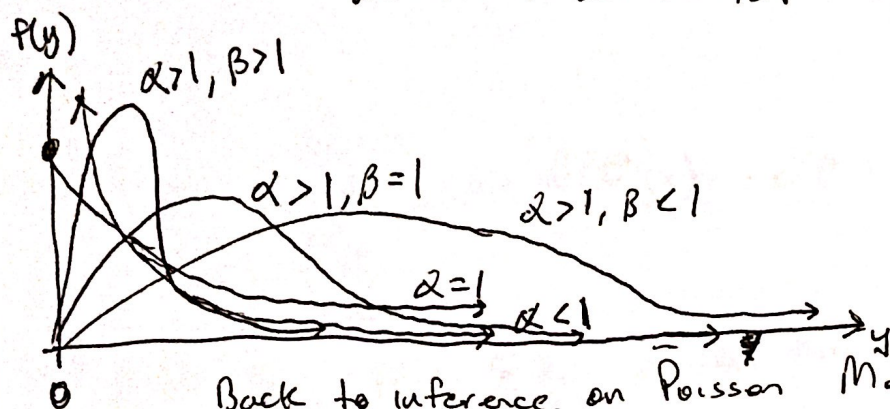 P(y)
α>1, β>1
α>1, β=1
α>1, β<1
α=1
α<1
y
0
Back to inference on Poisson